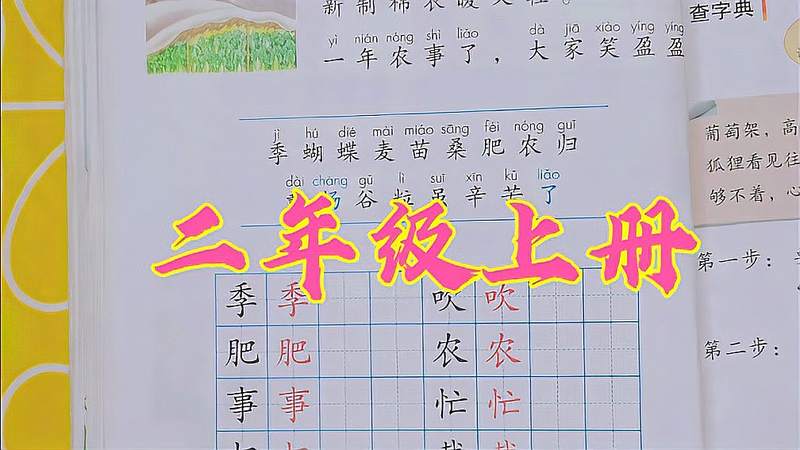 新制棉衣暖又轻。
yì nián nóng shì liǎo dà jiā xiào yíng yíng
一年农事了，大家笑盈盈
jì hú dié mài miáo sāng féi nóng guī
季蝴蝶麦苗桑肥农归
dài cháng gǔ lì suī xīn kǔ liǎo
场谷粒虽辛苦了
二年级上册
季季 吹吹
肥肥 农农
事事 忙忙
查字典
葡萄架，高
狐狸看见往
够不着，心
第一步：
第二步：